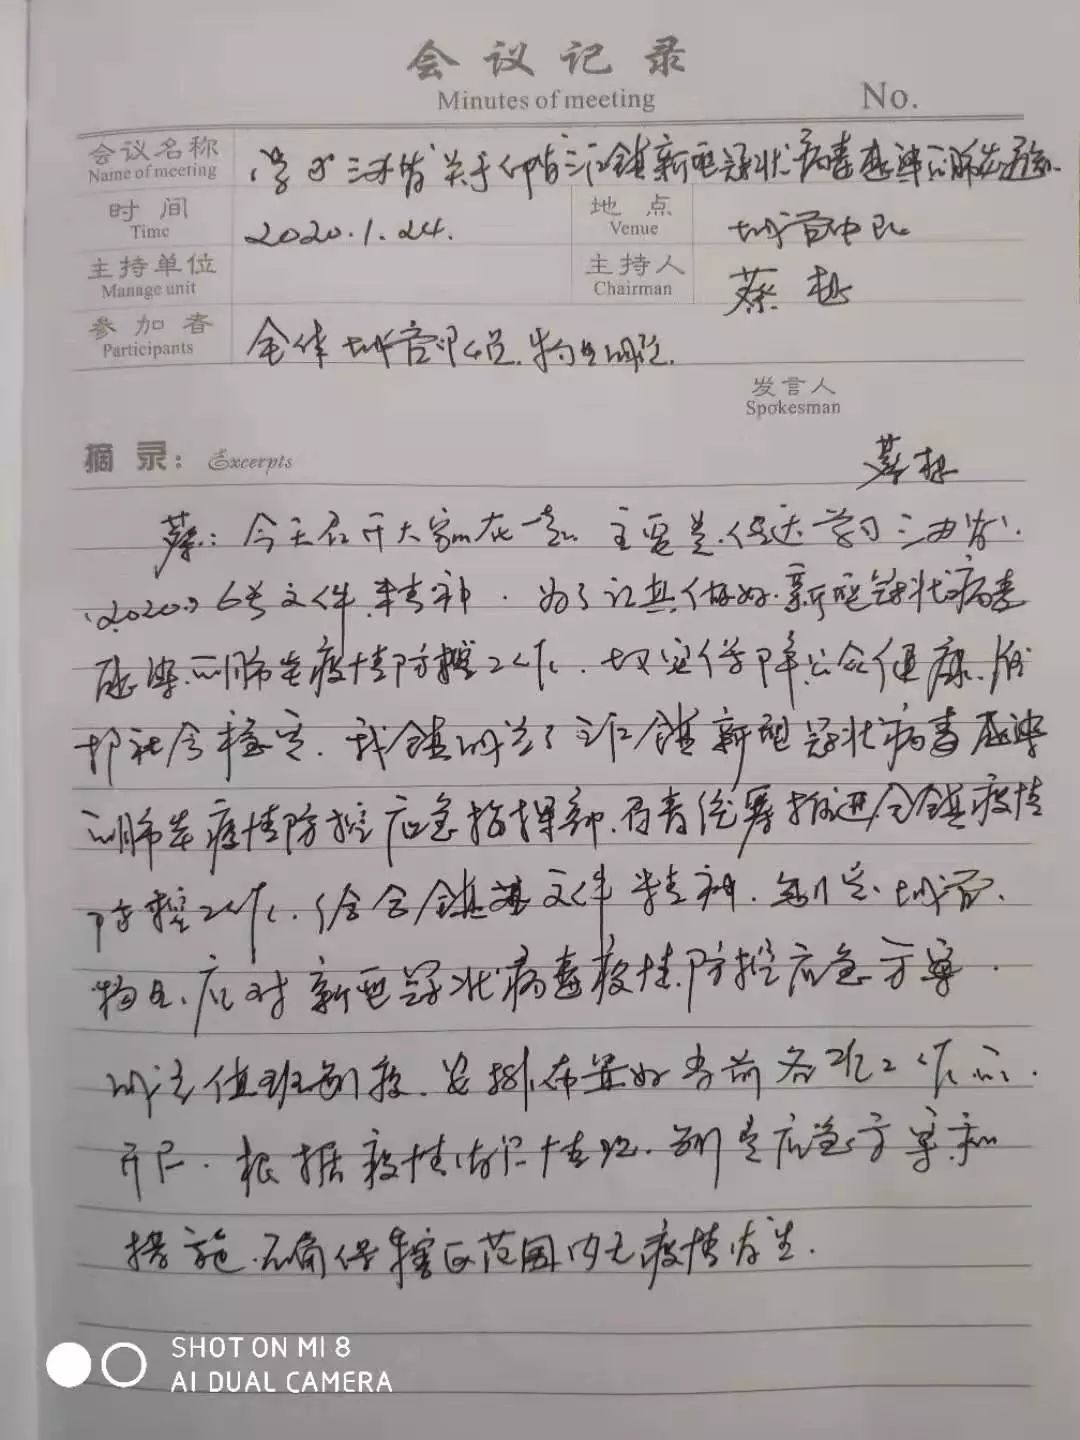 会议记录
Minutes of meeting
No.
会议名称
Name of meeting
学习三办发关于印发三江镇新型冠状病毒感染的肺炎
时间
Time
2020.1.24.
地点
Venue
城管中队
主持单位
Manage unit
主持人
Chairman
蔡
参加者
Participants
全体城管队员.物业
发言人
Spokesman
摘录:
Excerpts
蔡
蔡:今天召开大家在一起.主要是.传达学习三办发.
(2020)6号文件精神.为了认真做好.新型冠状病毒
感染的肺炎疫情防控工作.切实保障公众健康.维
护社会稳定.我镇成立了三江镇新型冠状病毒感染
的肺炎疫情防控应急指挥部.负责统筹推进全镇疫情
防控工作.结合镇文件精神.制定.城管.
物业.应对新型冠状病毒疫情.防控应急方案.
成立值班制度.安排布置好当前各项工作的.
开展.根据疫情发展情况.制定应急方案和
措施.确保辖区范围内无疫情发生.
SHOT ON MI 8
AI DUAL CAMERA